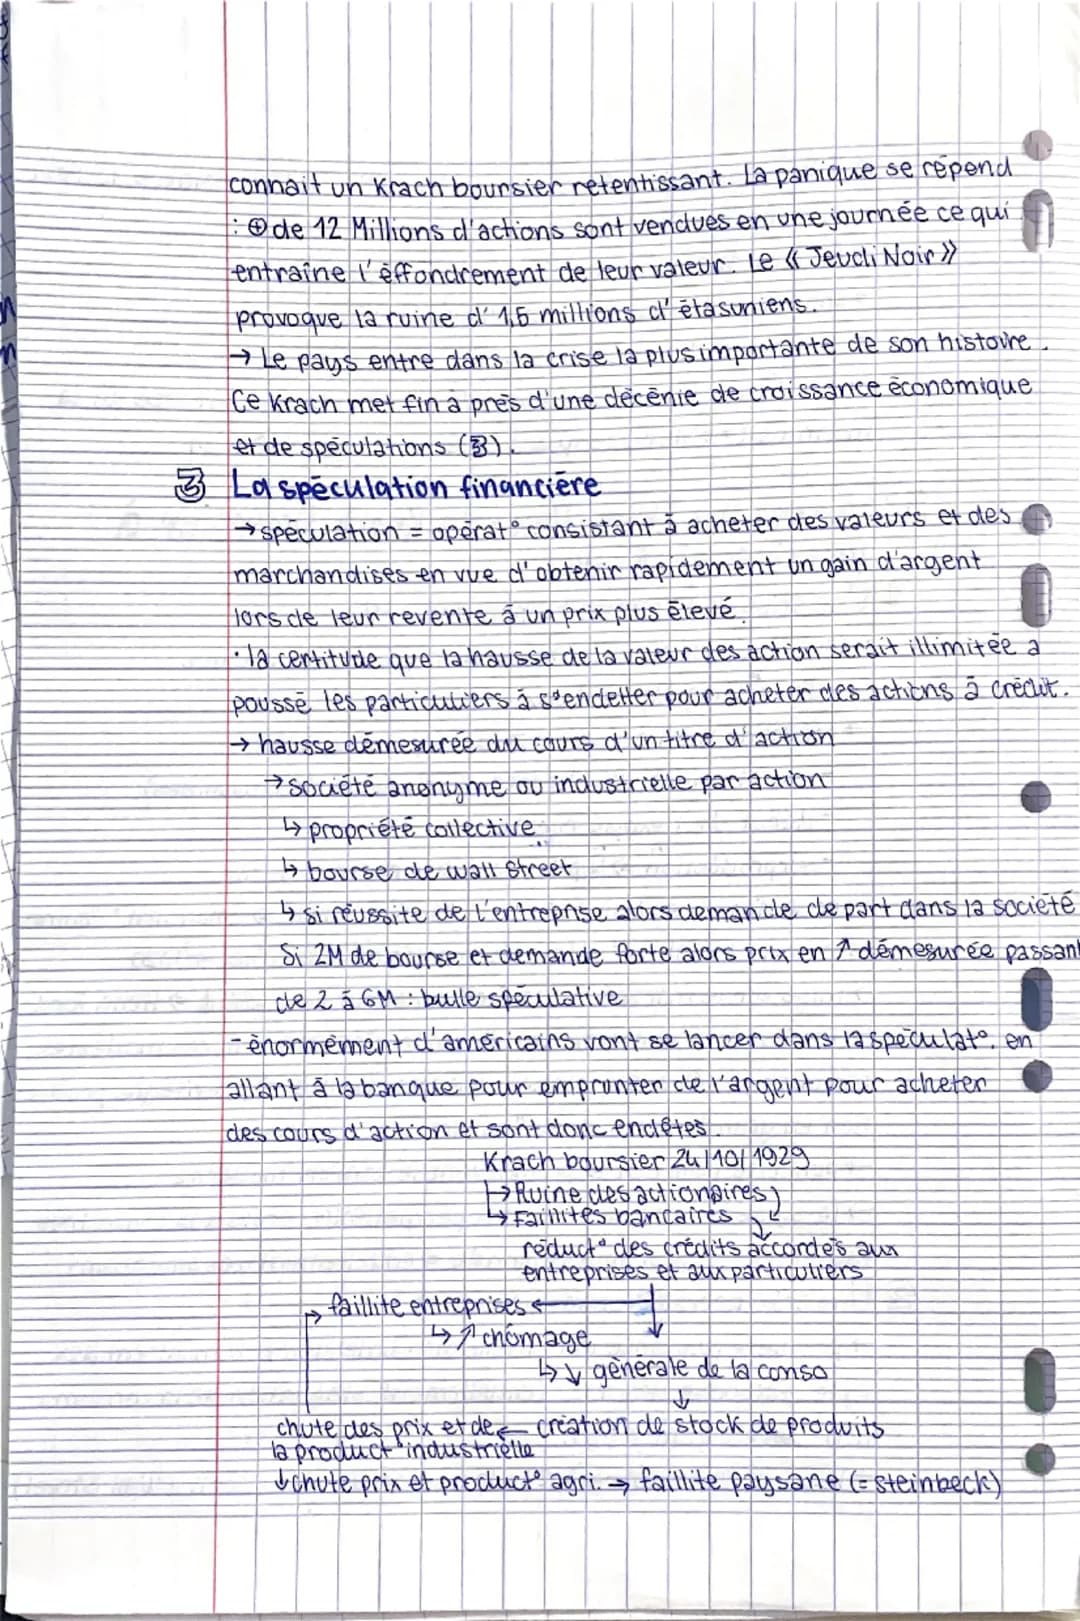 connait un Krach boursier retentissant. La panique se répend
: ⊕ de 12 Millions d'actions sont vendues en une journée ce qui
entraîne l'éffondrement de leur valeur. Le « Jeudi Noir »
provoque la ruine d' 1,5 millions d' étasuniens.
→ Le pays entre dans la crise la plus importante de son histoire.
Ce Krach met fin à près d'une décénie de croissance économique
et de spéculations (3).
3 La spéculation financière
→ spéculation = opérat° consistant à acheter des valeurs et des
marchandises en vue d'obtenir rapidement un gain d'argent
lors de leur revente à un prix plus élevé.
· la certitude que la hausse de la valeur des action serait illimitée a
poussé les particuliers à s'endetter pour acheter des actions à crédit.
→ hausse démesurée du cours d'un titre d'action
→ société anonyme ou industrielle par action
↳ propriété collective
↳ bourse de wall Street
↳ si réussite de l'entreprise alors demande de part dans la société
Si 2M de bourse et demande forte alors prix en ↗ démesurée passant
de 2 à 6M : bulle spéculative
- énormément d'américains vont se lancer dans la spéculat°. en
allant à la banque pour emprunter de l'argent pour acheter
des cours d'action et sont donc endêtes.
Krach boursier 24/10/1929
↳ Ruine des actionaires
↳ Faillites bancaires
réduct° des crédits accordés aux
entreprises et aux particuliers
faillite entreprises ←
↳ ↗ chômage
↳ ↓ générale de la conso
↓
chute des prix et de ← création de stock de produits
la product° industrielle
↓ chute prix et product° agri. → faillite paysane (= steinbeck)